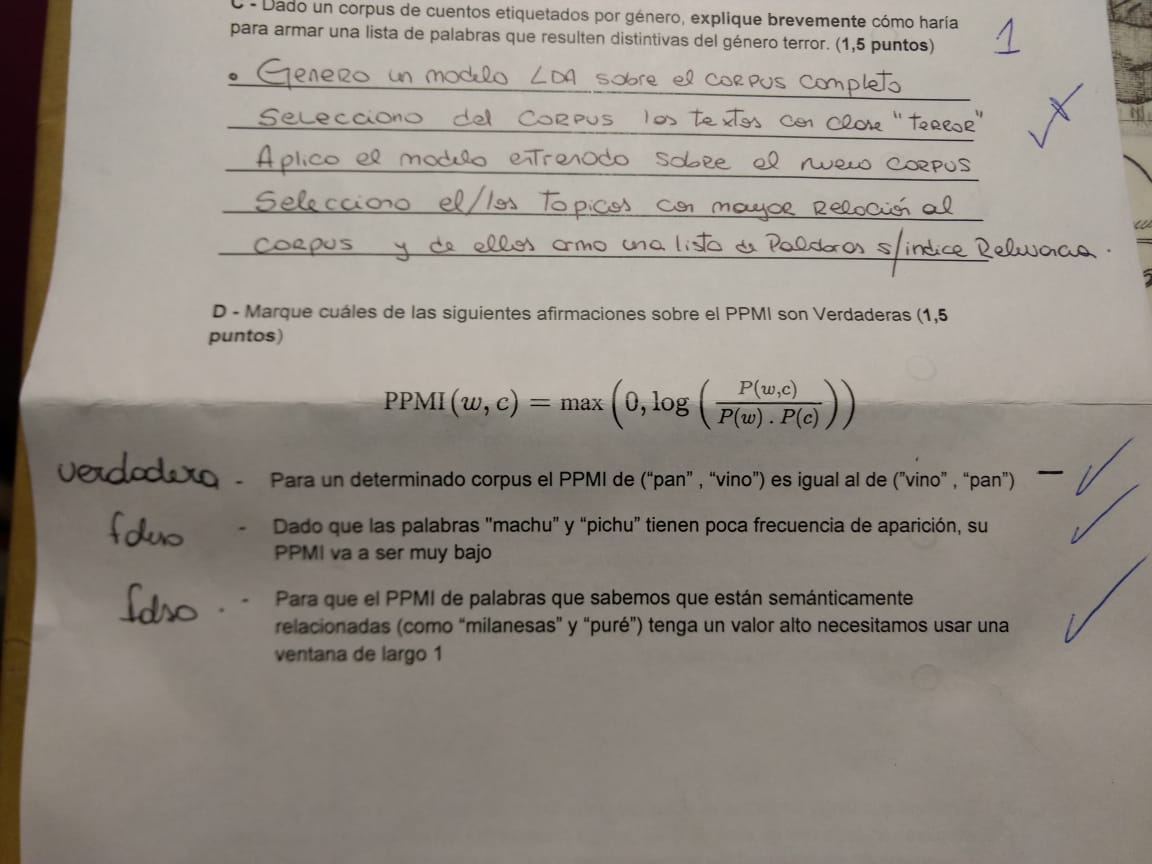 C - Dado un corpus de cuentos etiquetados por género, explique brevemente cómo haría
para armar una lista de palabras que resulten distintivas del género terror. (1,5 puntos)
1
• Genero un modelo LDA sobre el corpus completo
Selecciono del corpus los textos con clase "terror"
Aplico el modelo entrenado sobre el nuevo corpus
Selecciono el/los topicos con mayor Relación al
corpus y de ellos armo una lista de Palabras s/indice Relevancia.
D - Marque cuáles de las siguientes afirmaciones sobre el PPMI son Verdaderas (1,5
puntos)
PPMI(w, c) = max(0, log(P(w,c) / P(w) . P(c)))
verdadera - Para un determinado corpus el PPMI de (“pan” , “vino”) es igual al de (”vino” , “pan”)
falso - Dado que las palabras "machu” y “pichu” tienen poca frecuencia de aparición, su
PPMI va a ser muy bajo
falso. - Para que el PPMI de palabras que sabemos que están semánticamente
relacionadas (como “milanesas” y “puré”) tenga un valor alto necesitamos usar una
ventana de largo 1